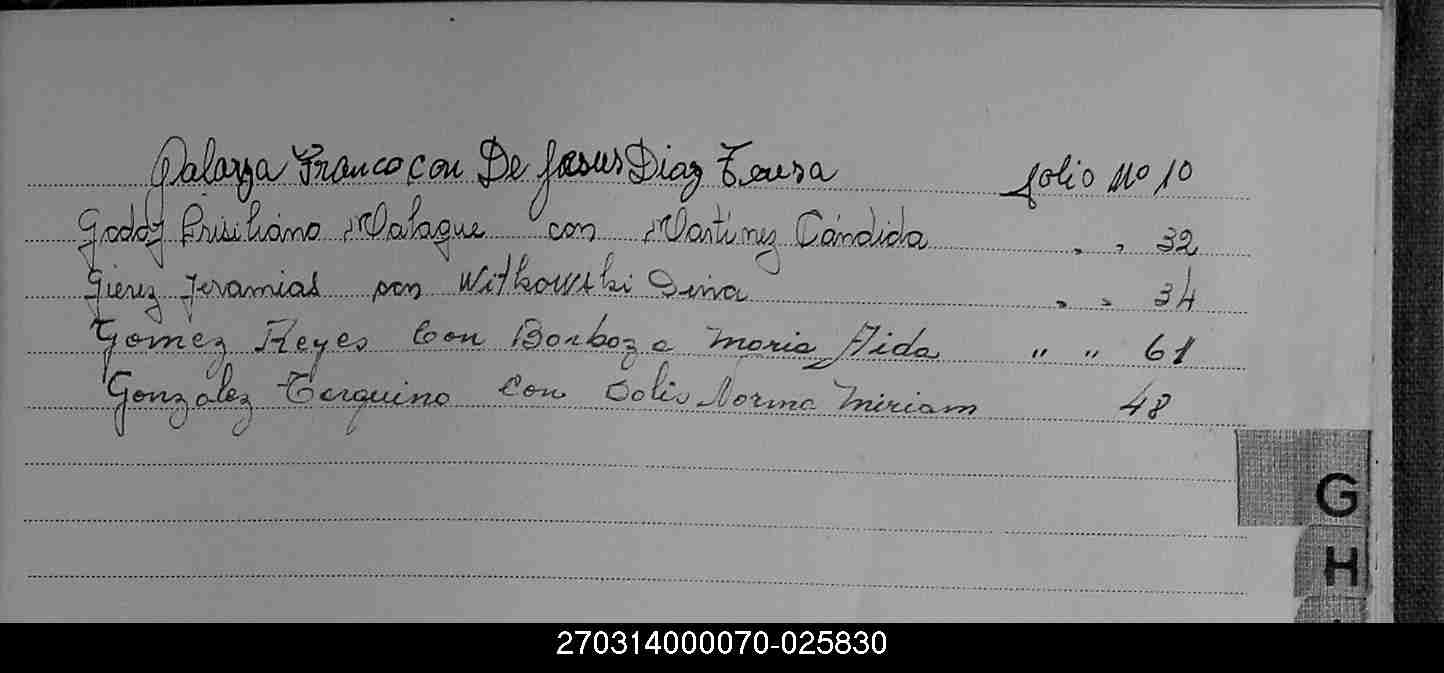 Galarza Franco con De Jesus Diaz Teresa folio No 10
Godoy Prisiliano Malaque con Martinez Cándida " " 32
Gierez Jeramias con Witkowski Dina " " 34
Gomez Reyes Con Borboza Maria Aida " " 61
Gonzalez Tarquino Con Solis Norma Miriam 48
G
H
270314000070-025830